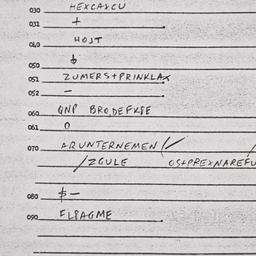 030 HEXCAXCU
031 +
040 HOJT
050
051 ZUMERS+PRINKLAX
052 -
060 QNP BRO,DEFKSE
061 0
070 ARUNTERNEMEN/
/ZGULE OS+PREXNAREFU
080 $-
090 FLPAGME